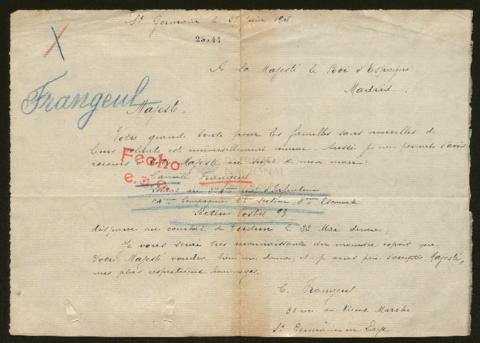 St Germain le juin
A Sa Majesté le Roi d'Espagne
Madrid.
Frangeul
Majesté.
Votre grande bonté pour les familles sans nouvelles de
leurs soldats est universellement connue. Aussi je me permets d'avoir
recours à Votre Majesté au sujet de mon mari
Fecho
Camille Frangeul
d'Infanterie
Compagnie Section Escouade
Secteur Postal 93
disparu au combat de Verdun le 22 Mai dernier.
Je vous serai très reconnaissante du moindre espoir que
Votre Majesté voudra bien me donner, et je vous prie d'accepter Majesté,
mes plus respectueux hommages.
C. Frangeul
31 rue du Vieux Marché
St Germain en Laye